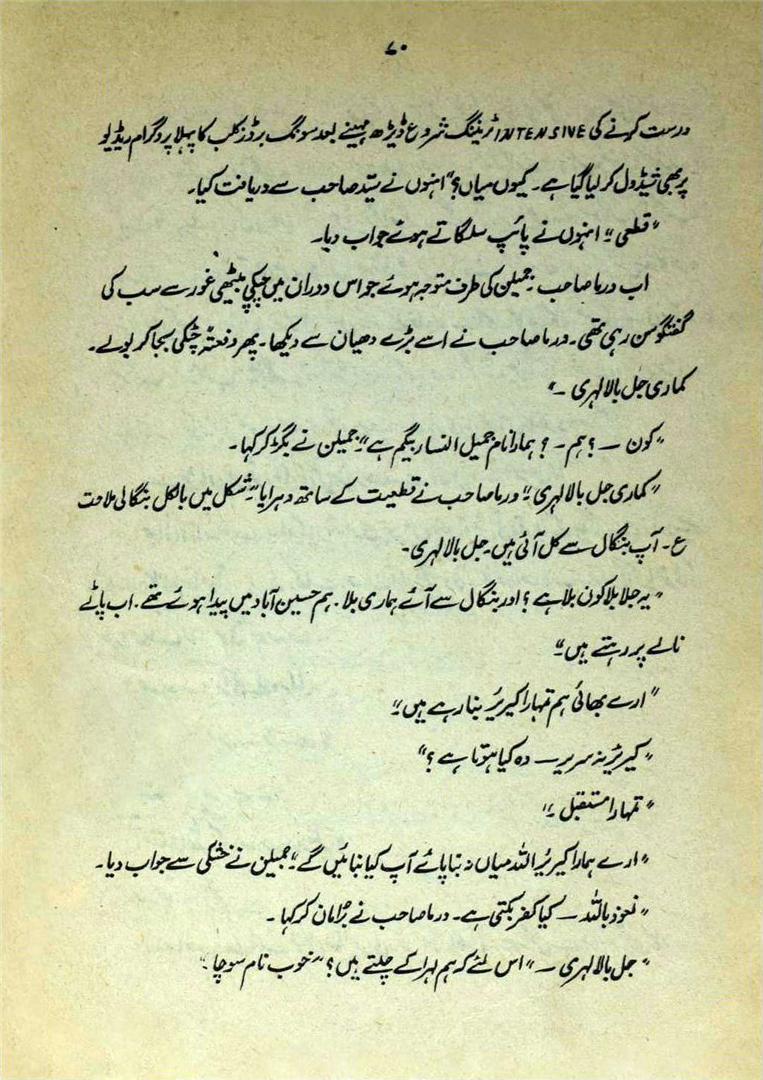 ۷۰
درست کرنے کی INTENSIVE ٹریننگ شروع ڈیڑھ مہینے بعد سونگ برڈز کلب کا پہلا پروگرام ریڈیو
پر بھی شیڈول کر لیا گیا ہے۔ کیوں میاں؟" انہوں نے سیّد صاحب سے دریافت کیا۔
"قطعی" انہوں نے پائپ سلگاتے ہوئے جواب دیا۔
اب ورما صاحب جمیلن کی طرف متوجہ ہوئے جو اس دوران میں چپکی بیٹھی غور سے سب کی
گفتگو سن رہی تھی۔ ورما صاحب نے اسے بڑے دھیان سے دیکھا۔ پھر دفعتہً چٹکی بجا کر بولے۔
کماری جل بالا لہری ۔"
"کون — ؟ ہم ۔ ؟ ہمارا نام جمیل النسا بیگم ہے" جمیلن نے بگڑ کر کہا۔
"کماری جل بالا لہری" ورما صاحب نے قطعیت کے ساتھ دہرایا "شکل میں بالکل بنگالی ملاحت
ع۔ آپ بنگال سے کل آئی ہیں۔ جل بالا لہری۔
"یہ جلا بلا کون بلا ہے؟ اور بنگال سے آئے ہماری بلا۔ ہم حسین آباد میں پیدا ہوئے تھے۔ اب پاٹے
نالے پر رہتے ہیں"
"ارے بھائی ہم تمہارا کیریئر بنا رہے ہیں"
"کیریئر نہ سریر — وہ کیا ہوتا ہے؟"
"تمہارا مستقبل ۔"
"ارے ہمارا کیریئر اللہ میاں نہ بنا پائے آپ کیا بنائیں گے" جمیلن نے خشکی سے جواب دیا۔
"نعوذ باللہ — کیا کفر بکتی ہے۔ ورما صاحب نے بُرا مان کر کہا۔
"جل بالا لہری — " اس لئے کہ ہم لہرا کے چلتے ہیں؟" خوب نام سوچا"